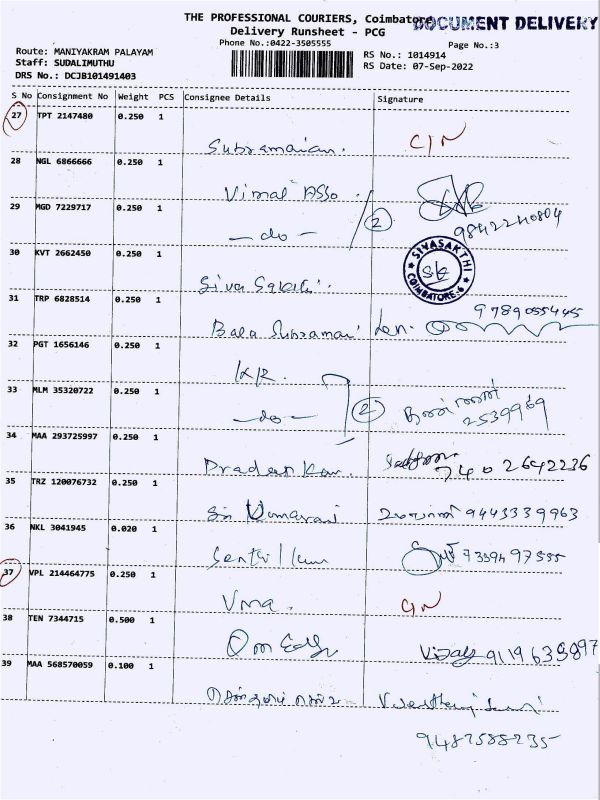 THE PROFESSIONAL COURIERS, Coimbatore
DOCUMENT DELIVERY
Delivery Runsheet - PCG
Phone No.:0422-3505555
Page No.:3
Route: MANIYAKRAM PALAYAM
Staff: SUDALIMUTHU
DRS No.: DCJB101491403
RS No.: 1014914
RS Date: 07-Sep-2022
S No Consignment No Weight PCS Consignee Details Signature
27 TPT 2147480 0.250 1
Subramaian. C/N
28 NGL 6866666 0.250 1
Vimal ASSo
29 MGD 7229717 0.250 1
- do - 2 9842240804
30 KVT 2662450 0.250 1
SIVASAKTHI
SK
COIMBATORE-6
Siva Sakthi.
31 TRP 6828514 0.250 1
9789055445
Bala Subramani
32 PGT 1656146 0.250 1
KR.
33 MLM 35320722 0.250 1
- do - 2 2539969
34 MAA 293725997 0.250 1
7402642236
35 TRZ 120076732 0.250 1
Sri Kumaran 9443339963
36 NKL 3041945 0.020 1
7339497555
37 VPL 214464775 0.250 1
Uma. C/N
38 TEN 7344715 0.500 1
Om Vijay 9119633897
39 MAA 568570059 0.100 1
9487588235